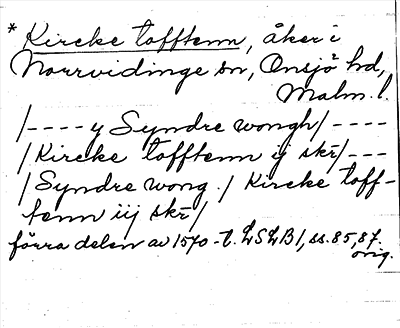 * Kircke tofftenn, åker i
Norrvidinge sn, Onsjö hd,
Malm. l.
/---- y Syndre wongh/ ----
/Kircke tofftenn ij skr̄/---
/Syndre wong./ Kircke toff-
tenn iij skr̄/
förra delen av 1570-t. LSLB1, ss. 85, 87.
orig.